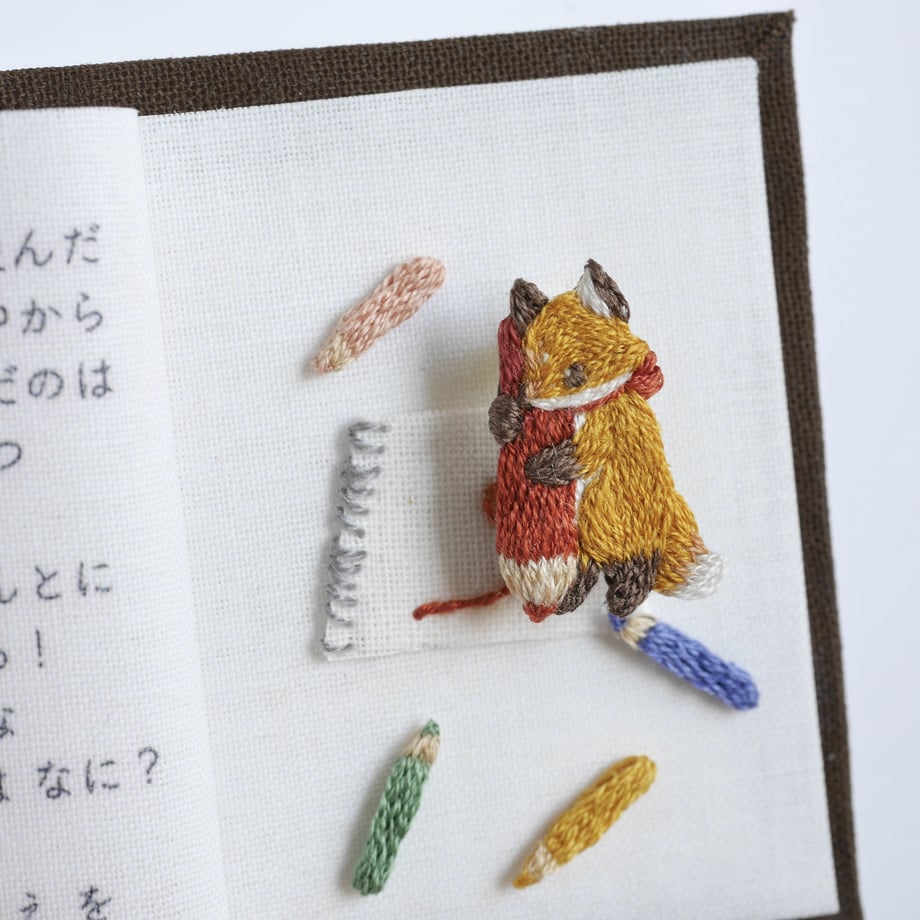 んだ
から
だのは
つ
とに
！
な
なに？
を